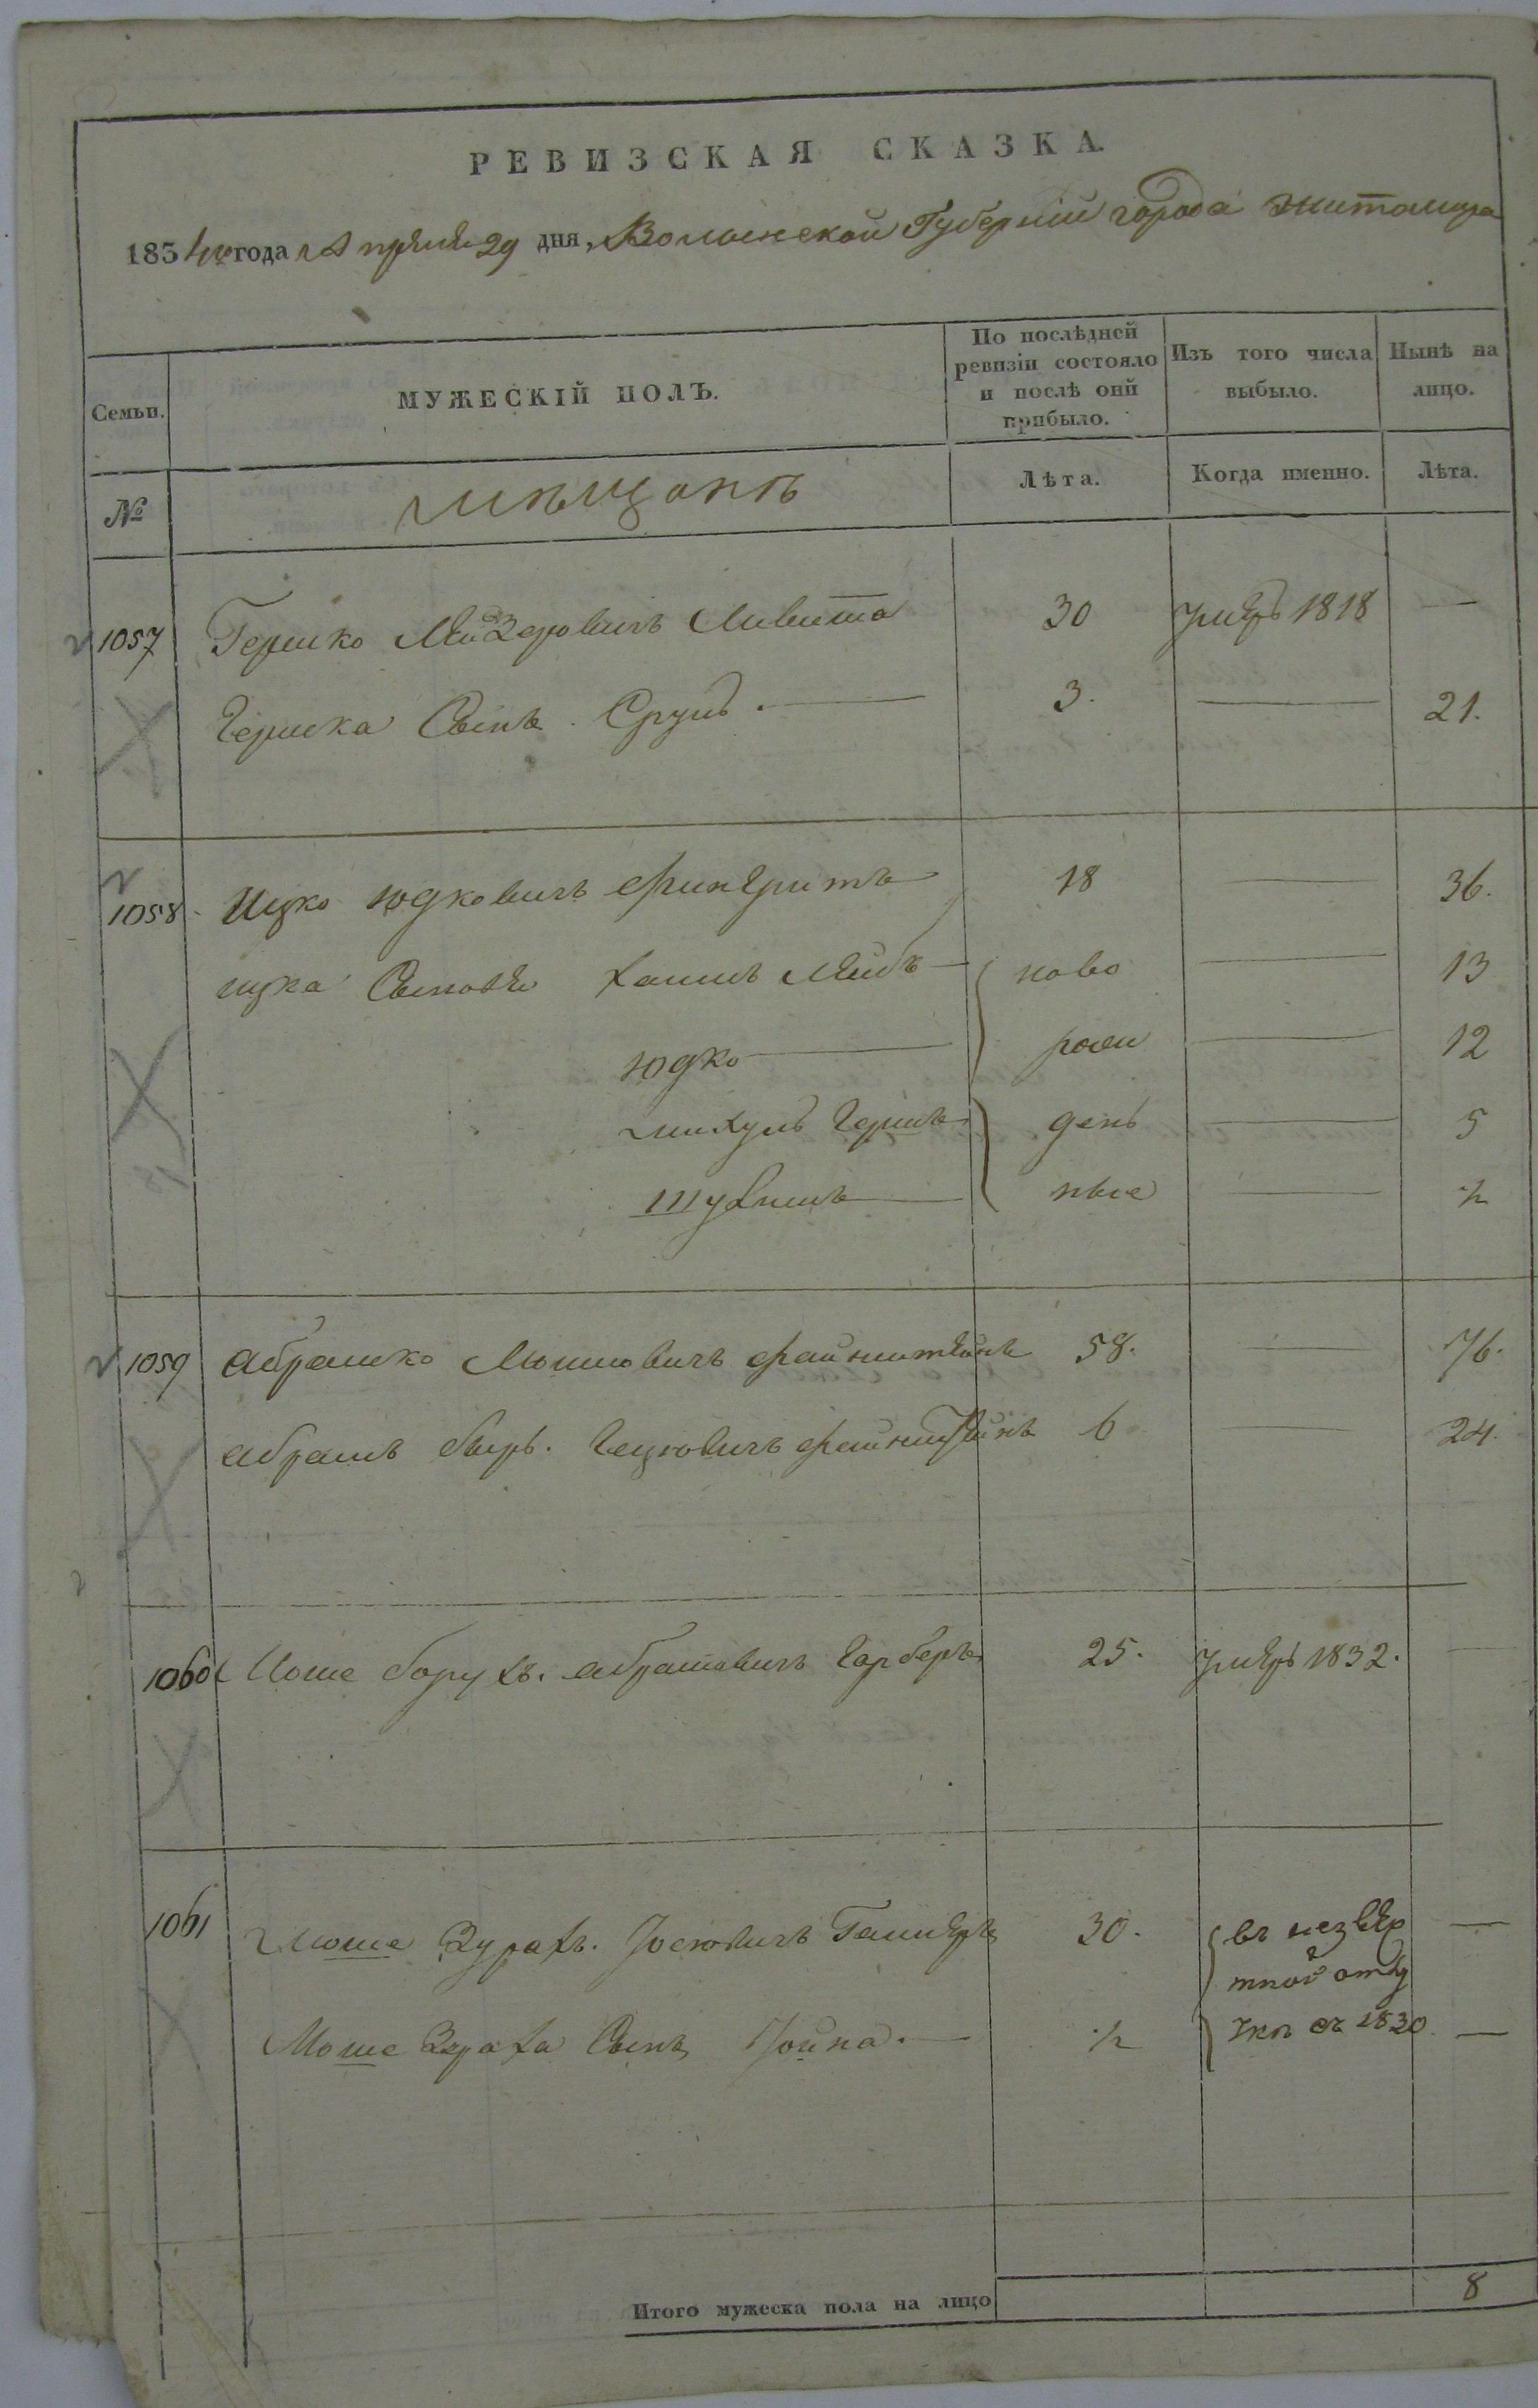 РЕВИЗСКАЯ СКАЗКА.
1834го года Апреля 29 дня, Волынской Губерніи города Житомира
Семьи.
МУЖЕСКІЙ ПОЛЪ.
По послѣдней ревизіи состояло и послѣ оной прибыло.
Изъ того числа выбыло.
Нынѣ на лицо.
№
мѣщанъ
Лѣта.
Когда именно.
Лѣта.
1057 Гершко Лейзеровичъ Ливита 30 умеръ 1818 —
Гершка Сынъ Сруль. — 3. — 21.
1058 Ицко Юдковичъ 18 — 36.
ицка Сыновья Хаимъ Лейбъ — ново — 13
Юдко — рож — 12
михуль Гершъ ден — 5
— ные — ½
1059 Абрамко Мошковичъ 58. — 76.
Абрамъ Гецковичъ 6 — 24.
1060 Иосе борухъ. Абрамовичъ Гарберъ 25. умеръ 1832.
1061 Моше Зурахъ. Іосіовичъ 30. въ неизвѣс —
тной отлу
Моше Зураха Сынъ Іойна. — ½ чкѣ съ 1830. —
Итого мужеска пола на лицо 8